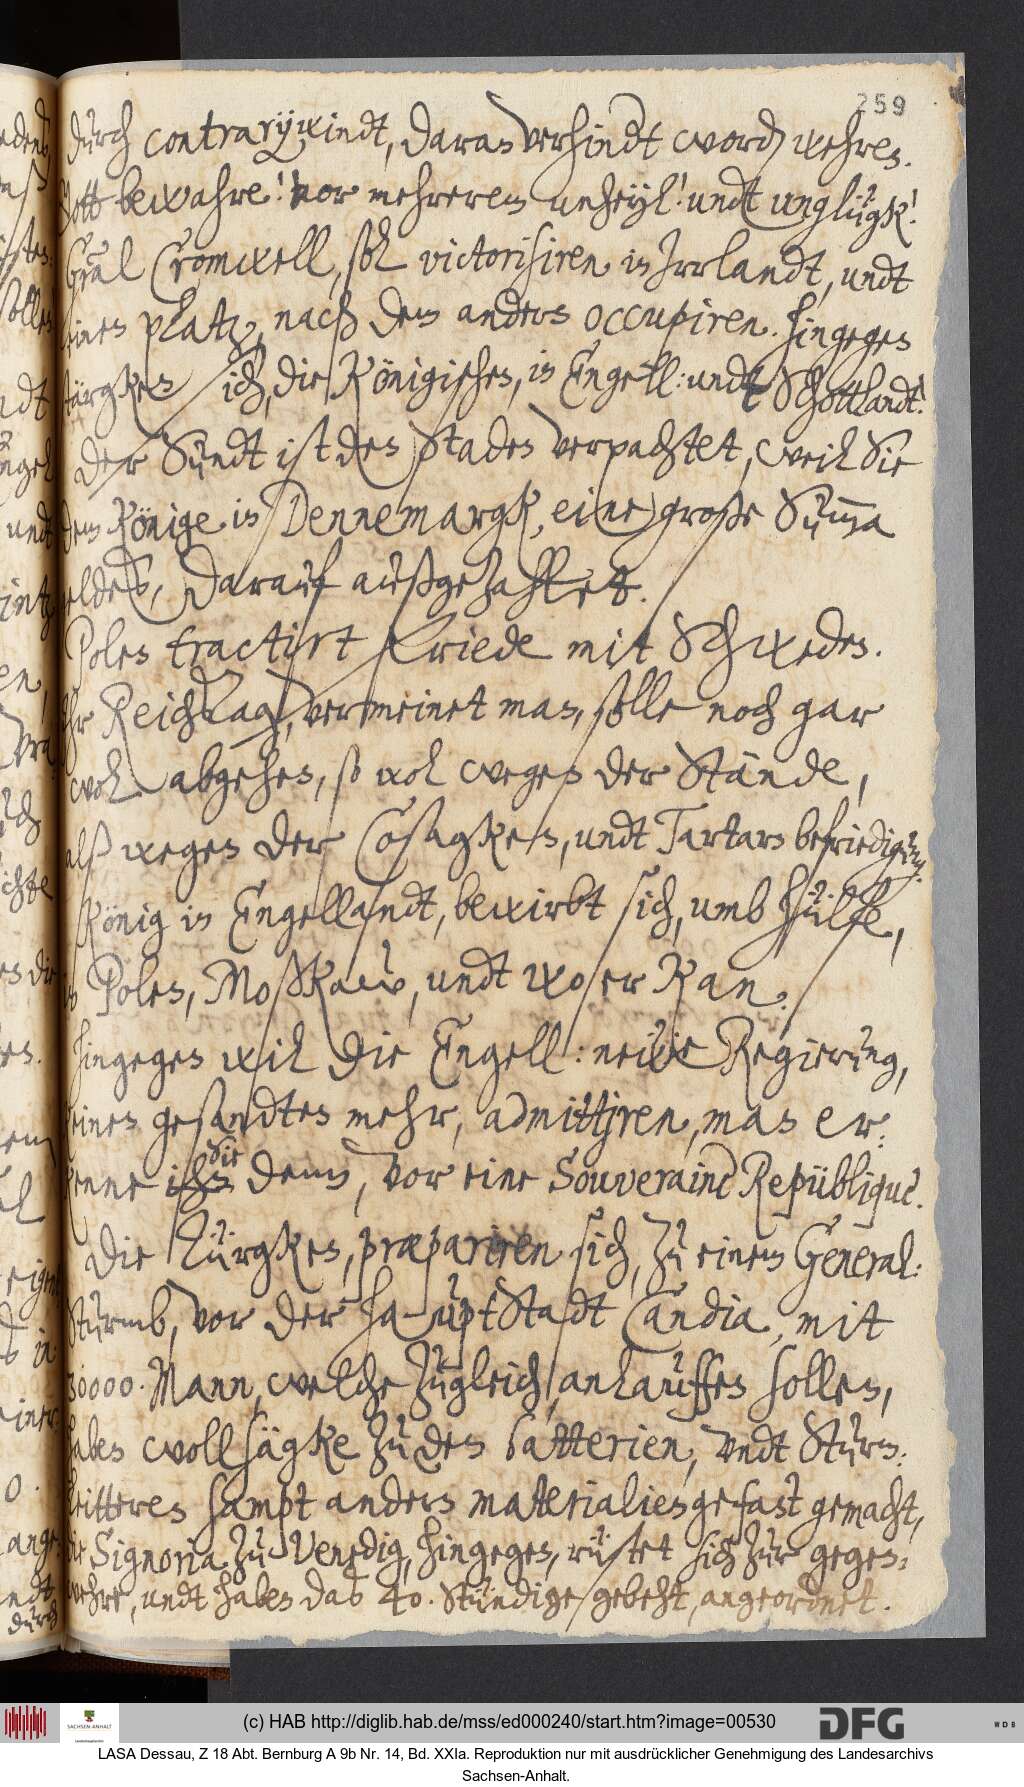 259
durch contrarywindt, daran verhindt word wehren.
Gott bewahre! vor mehrerem unheyl! undt unglügk!
Gral Cromwell, sol victorisiren in Irrlandt, undt
einen platz, nach dem andern occupiren. hingegen
stärgken sich, die Königischen, in Engell: undt Schottlandt!
Der Sundt ist den Staden verpachtet, weil Sie
dem Könige in Dennemargk, eine große Summa
geldes, darauf außgezahlet.
Polen tractirt Friede mit Schweden.
Ihr Reichstag, vermeinet man, solle noch gar
wol abgehen, so wol wegen der Stände,
alß wegen der Cosagken, undt Tartarn befriedigung.
König in Engellandt, bewirbt sich, umb hülfe,
in Polen, Moßkaw, undt wo er kan.
hingegen will die Engell: newe Regierung,
keinen gesandten mehr, admittiren, man er:
kenne Sie denn, vor eine Souveraine Republique.
Die Türgken, præpariren sich, zu einem General:
Sturmb, vor der HauptStadt Candia, mit
30000. Mann, welche zugleich, anlauffen sollen,
haben wollsägke zu den batterien, undt Sturm:
leitteren sampt andern materialien gefast gemacht,
die Signoria zu Venedig, hingegen, rüstet sich zur gegen:
wehre, undt haben das 40. Stündige gebeht, angeordnet.
durch
SACHSEN-ANHALT
(c) HAB http://diglib.hab.de/mss/ed000240/start.htm?image=00530
DFG
WDB
LASA Dessau, Z 18 Abt. Bernburg A 9b Nr. 14, Bd. XXIa. Reproduktion nur mit ausdrücklicher Genehmigung des Landesarchivs
Sachsen-Anhalt.